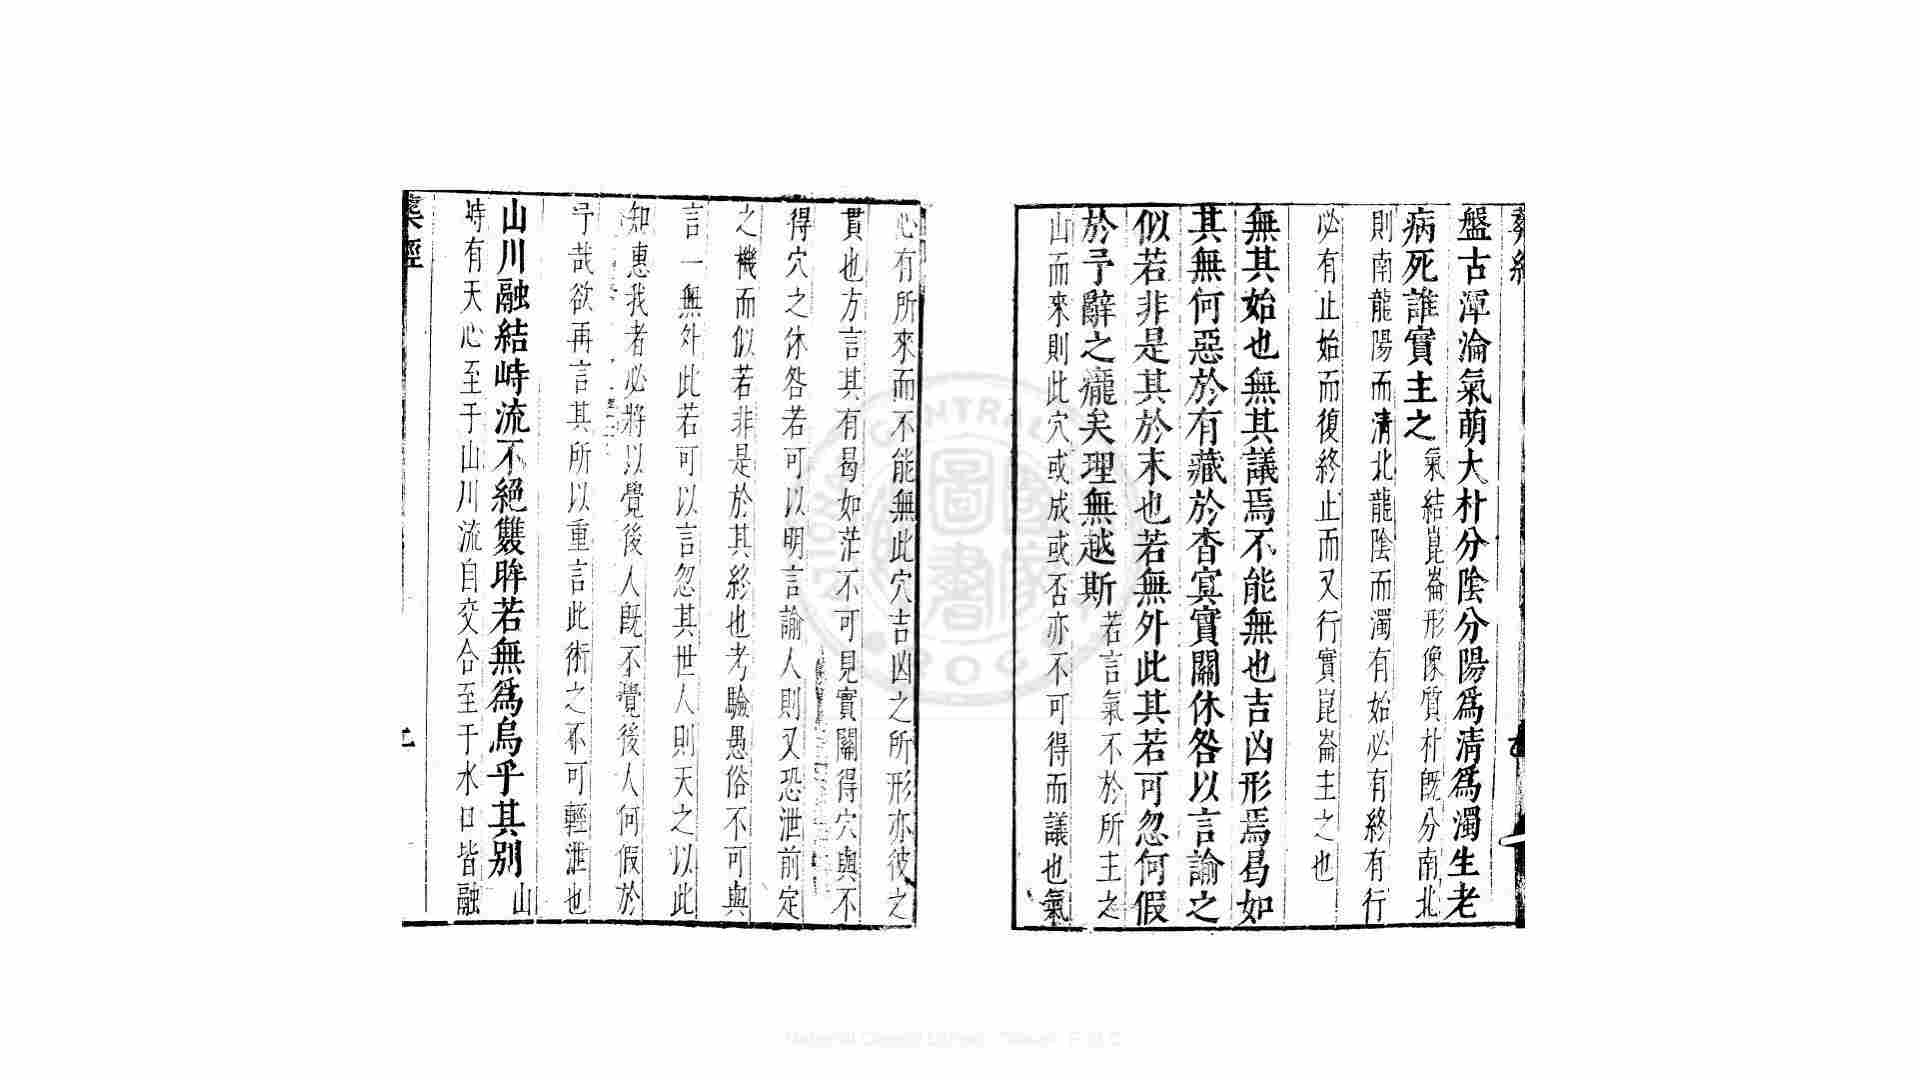 葬經
盤古渾淪氣萌大朴分陰分陽爲清爲濁生老
病死誰實主之氣結崑崙形像質朴旣分南北
則南龍陽而清北龍陰而濁有始必有終有行
必有止始而復終止而又行實崑崙主之也
無其始也無其議焉不能無也吉凶形焉曷如
其無何惡於有藏於杳冥實關休咎以言諭之
似若非是其於末也若無外此其若可忽何假
於予辭之癃矣理無越斯若言氣不於所主之
山而來則此穴或成或否亦不可得而議也氣
心有所來而不能無此穴吉凶之所形亦彼之
貫也方言其有曷如茫不可見實關得穴與不
得穴之休咎若可以明言諭人則又恐泄前定
之機而似若非是於其終也考驗愚俗不可與
言一無外此若可以言忽其世人則天之以此
知惠我者必將以覺後人旣不覺後人何假於
予哉欲再言其所以重言此術之不可輕泄也
山川融結峙流不絕雙眸若無爲烏乎其別山
峙有天心至于山川流自交合至于水口皆融
葬經